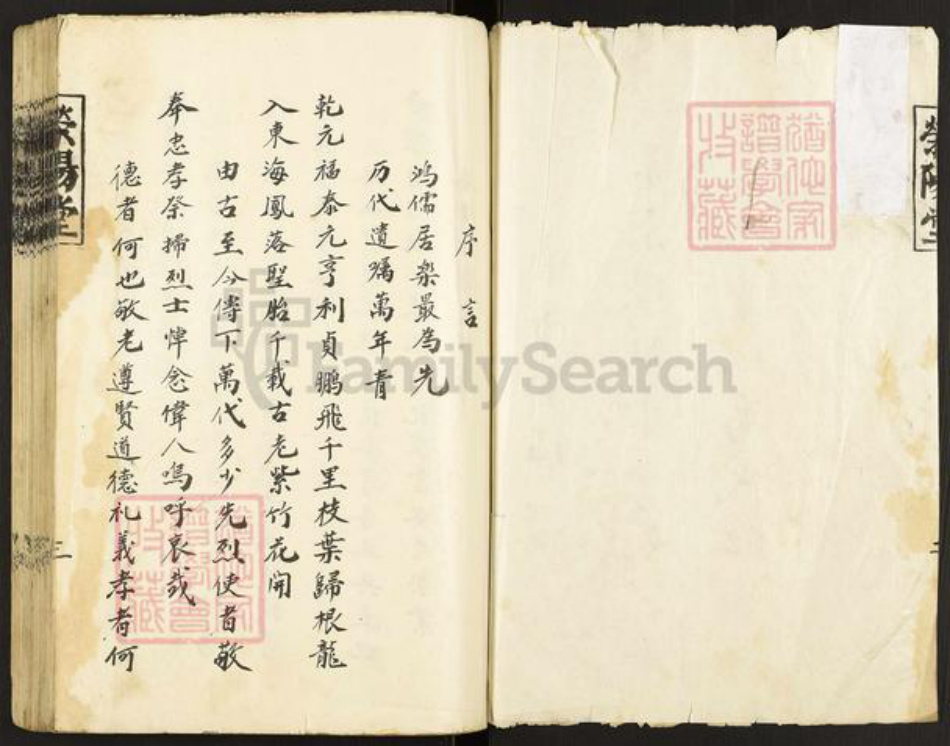 序言
鸿儒居樂最為先
历代遺嘱萬年青
乾元福泰元亨利貞鵬飛千里枝葉歸根龍
入東海鳳落聖胎千載古老紫竹花開
由古至今傳下萬代多少先烈使者敬
奉忠孝祭掃烈士悼念偉人嗚呼哀哉
德者何也敬老遵賢道德礼義孝者何
滎陽堂
二
滎陽堂
猶他家
譜學會
收藏
猶他家
譜學會
收藏
FamilySearch